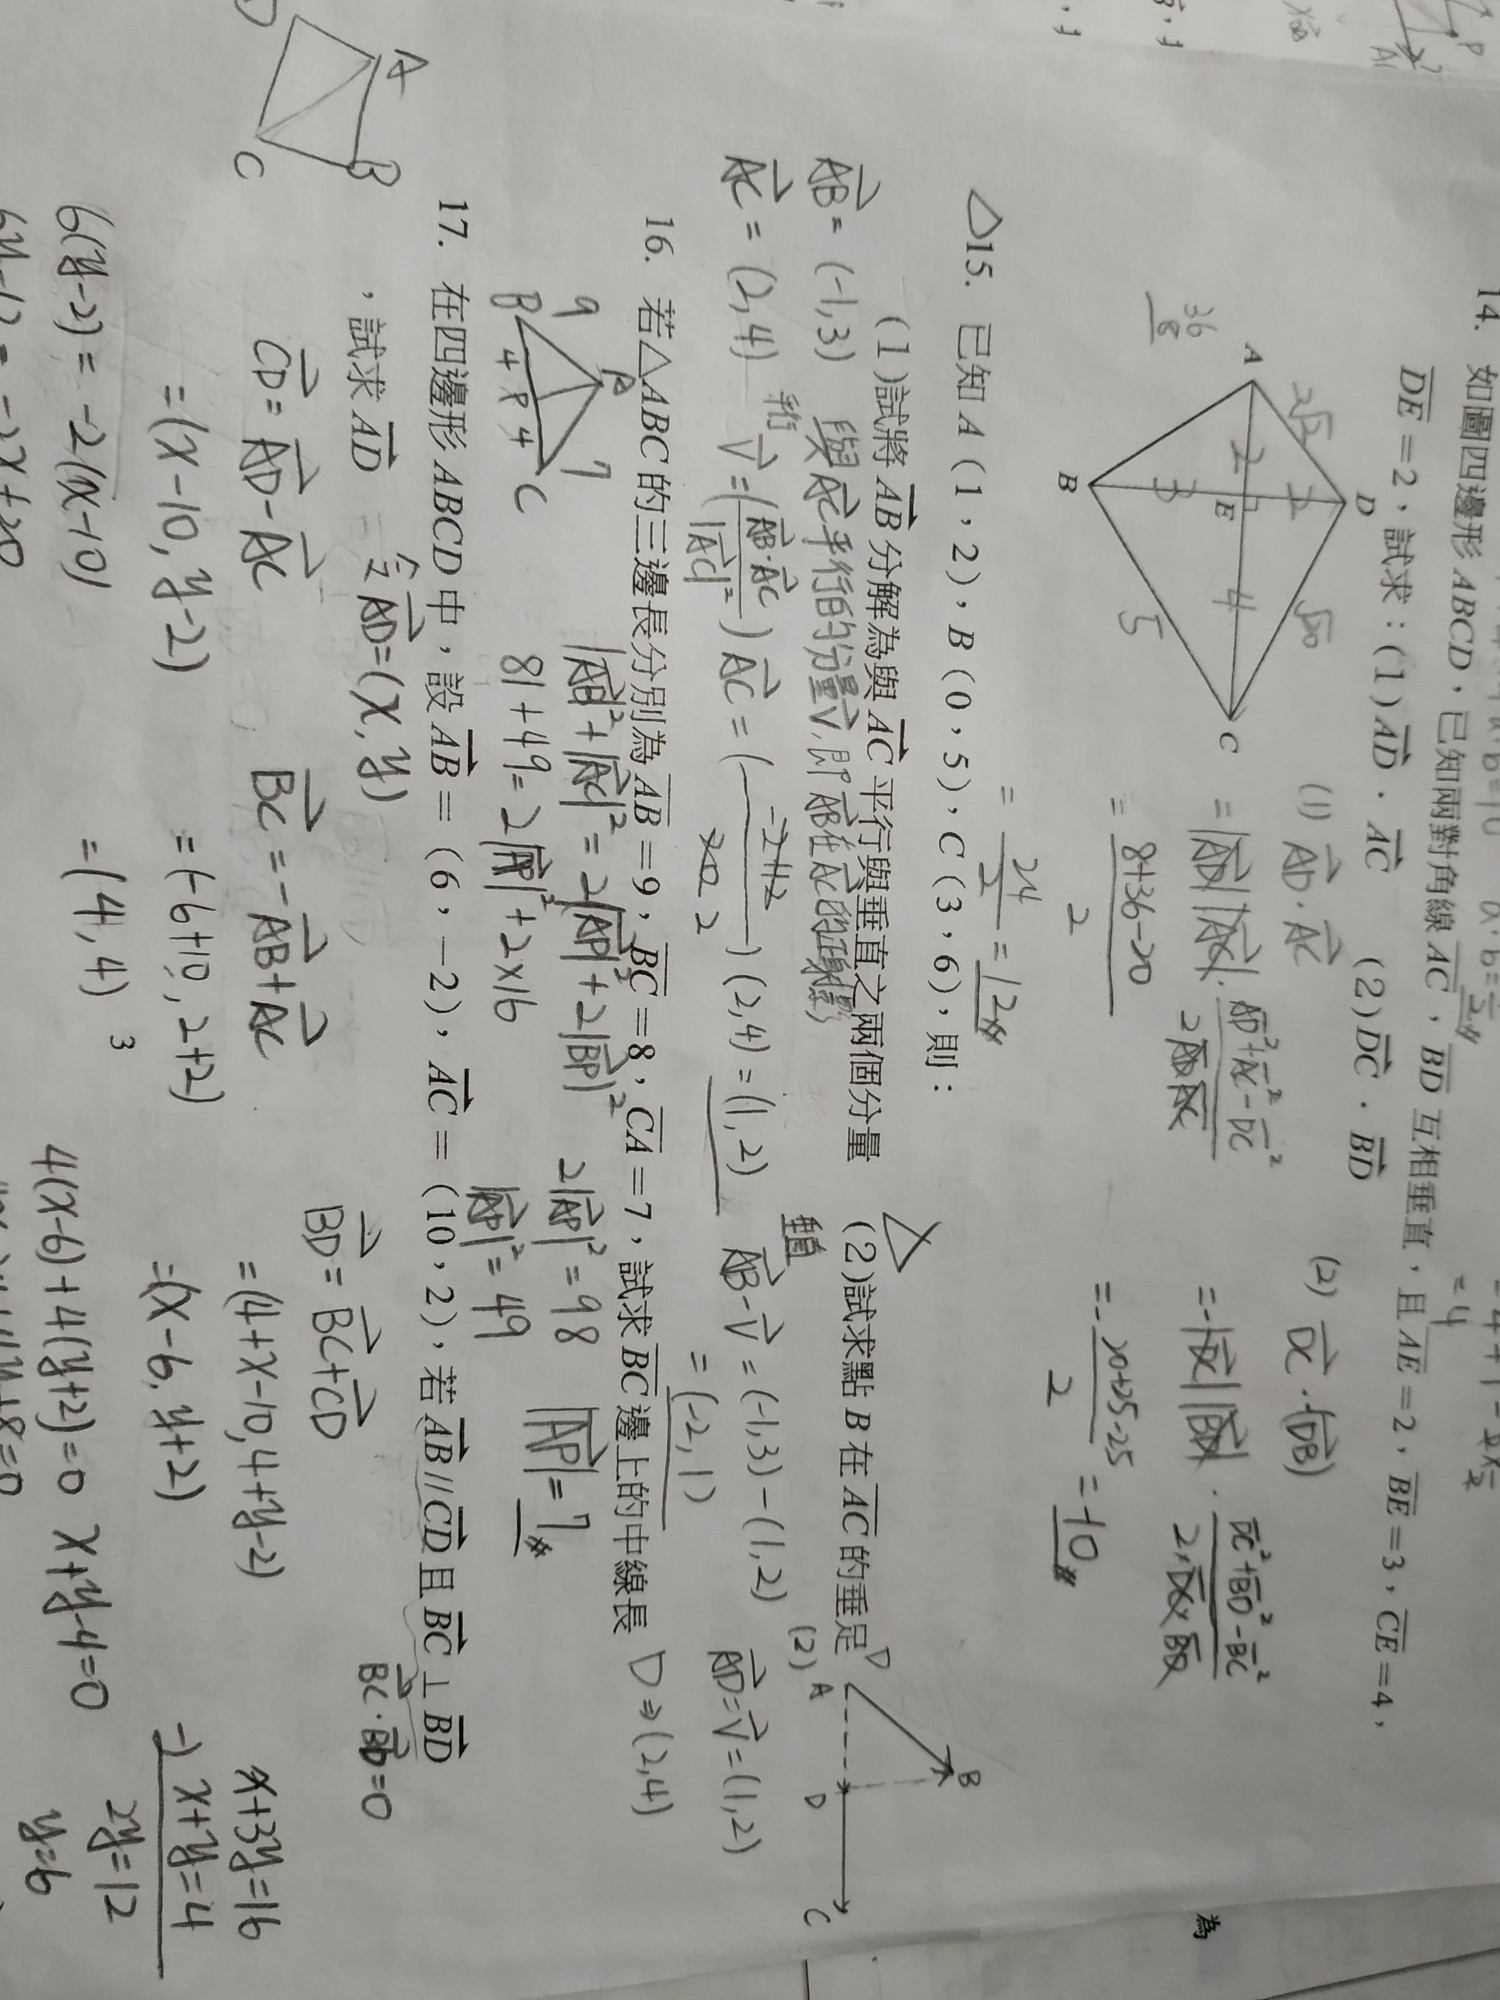 14. 如圖四邊形ABCD,已知兩對角線AC,BD互相垂直,且AE=2,BE=3,CE=4,
DE=2,試求:(1)AD·AC (2)DC·BD
A
B
C
D
E
2√2
2
2
3
4
5
√20
36
8
(1) AD·AC
=|AD||AC|·(AD²+AC²-DC²)/(2AD·AC)
=(8+36-20)/2
=24/2=12
(2) DC·(-DB)
=-|DC||BD|·(DC²+BD²-BC²)/(2×DC×BD)
=-(20+25-25)/2 =-10
△15. 已知A(1,2),B(0,5),C(3,6),則:
(1)試將AB分解為與AC平行與垂直之兩個分量 (2)試求點B在AC的垂足D
AB=(-1,3) 與AC平行的分量V,即AB在AC的正射影
AC=(2,4) 平行 V=(AB·AC/|AC|²)AC=(-2+12/20 2)(2,4)=(1,2)
垂直 AB-V=(-1,3)-(1,2)
=(-2,1)
(2) A
B
D
C
AD=V=(1,2)
D⇒(2,4)
16. 若△ABC的三邊長分別為AB=9,BC=8,CA=7,試求BC邊上的中線長
A
9
7
B
4
P
4
C
|AB|²+|AC|²=2|AP|²+2|BP|²
81+49=2|AP|²+2×16
2|AP|²=98
|AP|²=49
|AP|=7
17. 在四邊形ABCD中,設AB=(6,-2),AC=(10,2),若AB//CD且BC⊥BD
,試求AD
BC·BD=0
令AD=(x,y)
A
B
C
D
CD=AD-AC
=(x-10,y-2)
BC=-AB+AC
=(-6+10,2+2)
=(4,4)
3
BD=BC+CD
=(4+x-10,4+y-2)
=(x-6,y+2)
6(y-2)=-2(x-10)
6y-12=-2x+20
4(x-6)+4(y+2)=0 x+y-4=0
x+3y=16
-) x+y=4
2y=12
y=6
為